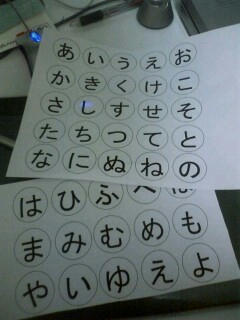 あいうえお
かきくけこ
さしすせそ
たちつてと
なにぬねの
はひふへほ
まみむめも
やいゆえよ